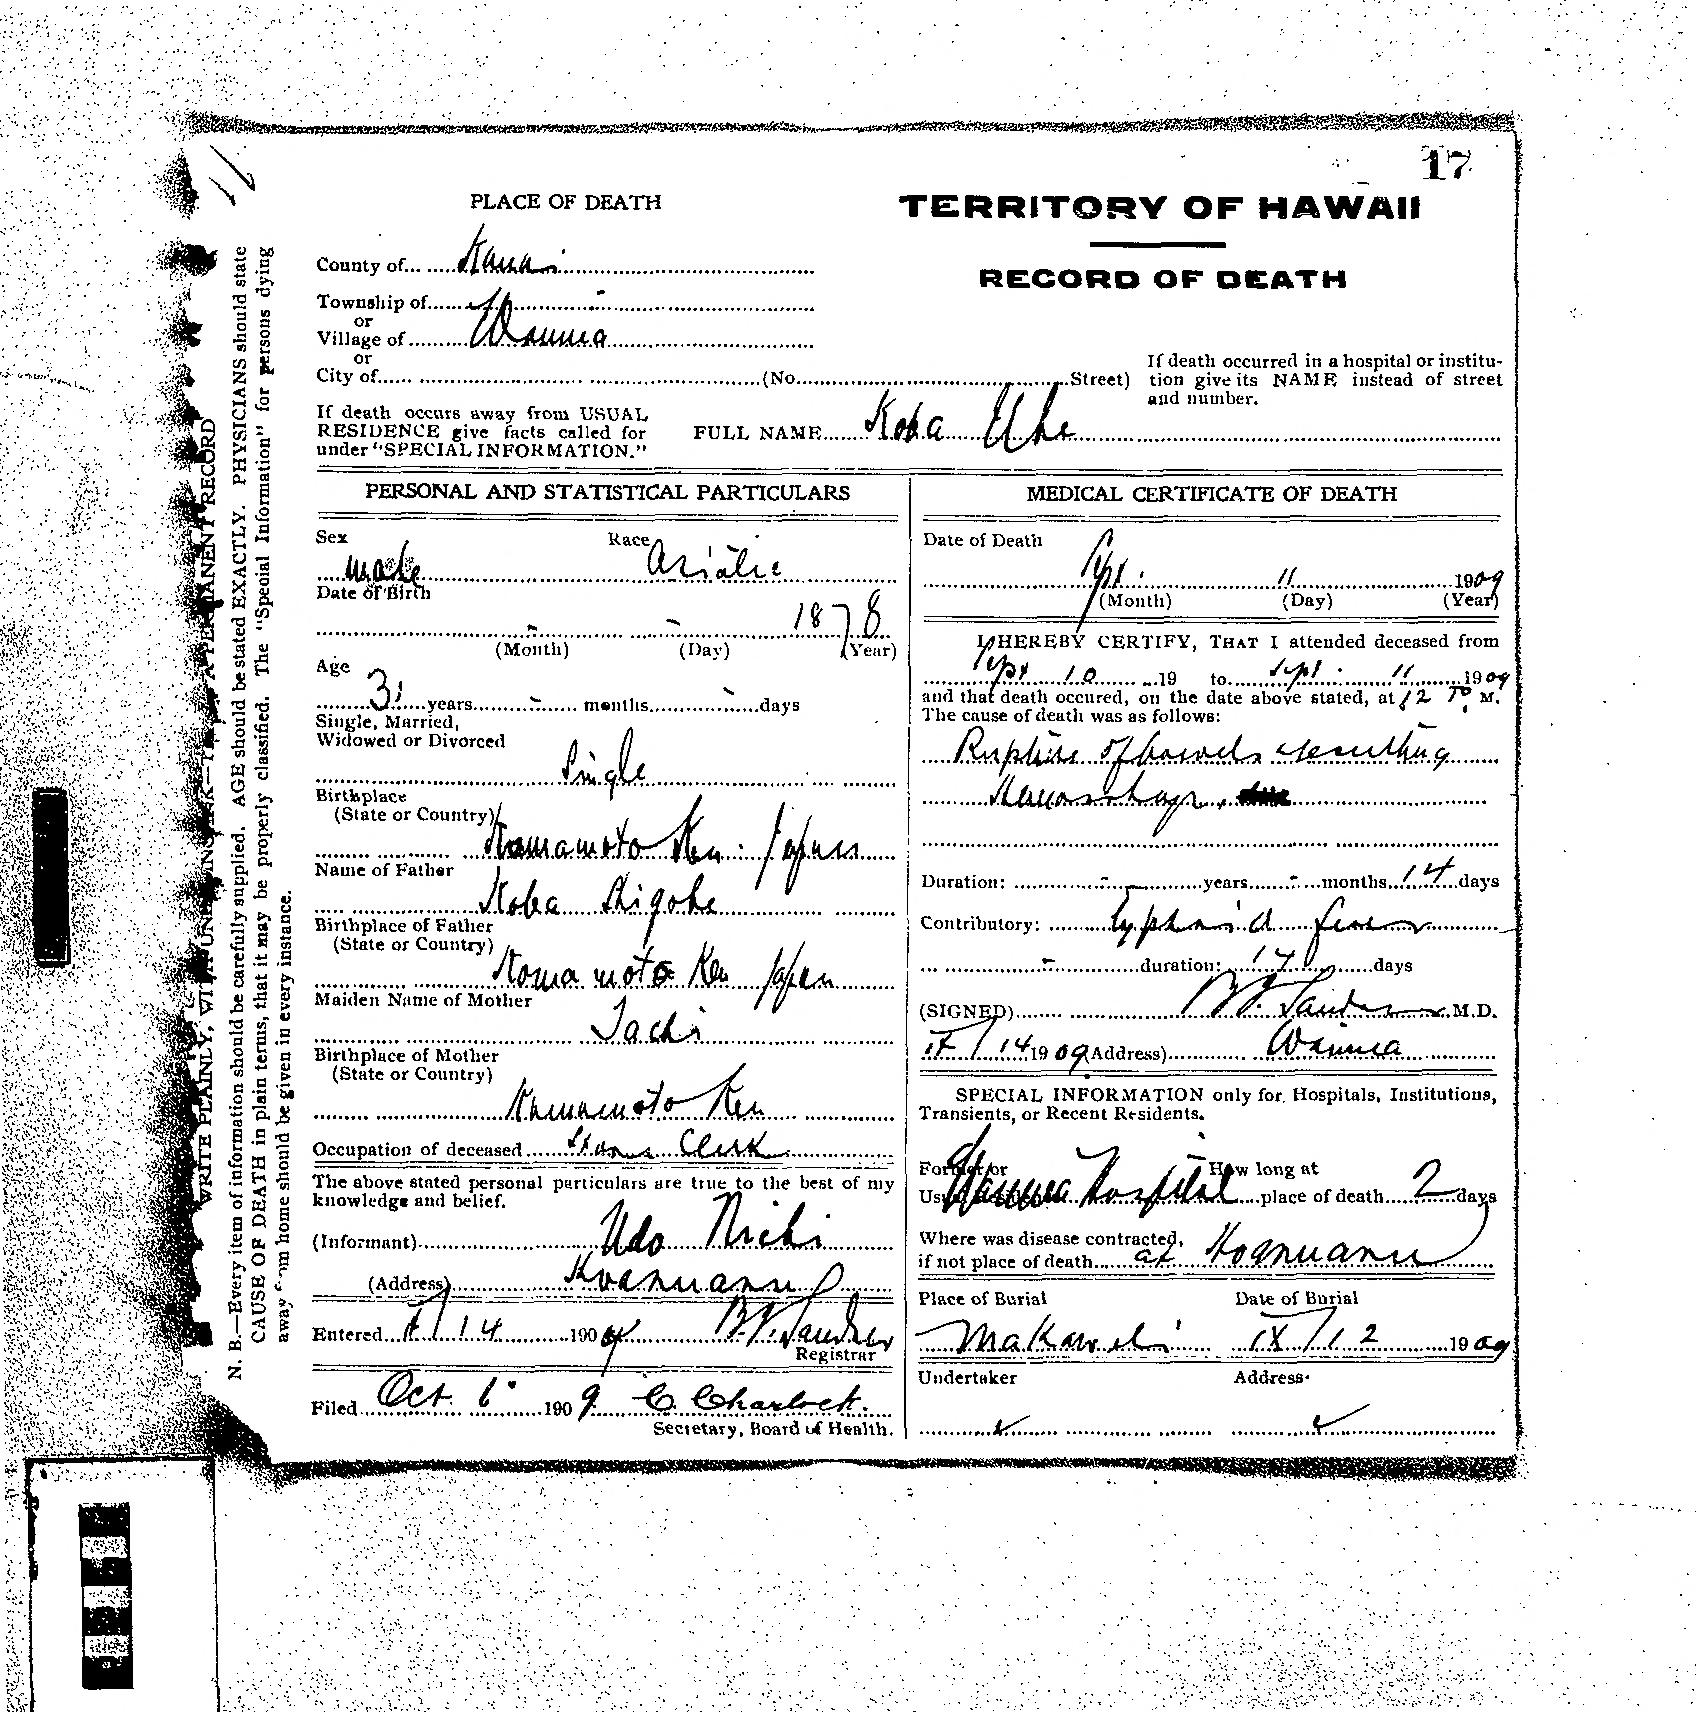 17
11
PLACE OF DEATH
TERRITORY OF HAWAII
RECORD OF DEATH
County of Kauai
Township of -
or
Village of Waimea
or
City of (No. Street)
If death occurred in a hospital or institution give its NAME instead of street and number.
If death occurs away from USUAL RESIDENCE give facts called for under "SPECIAL INFORMATION."
FULL NAME Koba Uhe
PERSONAL AND STATISTICAL PARTICULARS
Sex Race
male Asiatic
Date of Birth
- - 1878
(Month) (Day) (Year)
Age
31 years - months - days
Single, Married,
Widowed or Divorced
Single
Birthplace
(State or Country)
Kumamoto Ken Japan
Name of Father
Koba
Birthplace of Father
(State or Country)
Kumamoto Ken Japan
Maiden Name of Mother
Tachi
Birthplace of Mother
(State or Country)
Kumamoto Ken
Occupation of deceased Clerk
The above stated personal particulars are true to the best of my
knowledge and belief.
(Informant) Udo Nichi
(Address)
Entered 14 1909
Registrar
Filed Oct. 6 1909 C. Charlock.
Secretary, Board of Health.
MEDICAL CERTIFICATE OF DEATH
Date of Death
Sept. 11 1909
(Month) (Day) (Year)
I HEREBY CERTIFY, THAT I attended deceased from
Sept 10 19 to Sept. 11 1909
and that death occured, on the date above stated, at 12 M.
The cause of death was as follows:
Rupture of bowels resulting
Duration: - years - months 14 days
Contributory: Typhoid fever
- duration: 17 days
(SIGNED) Sandow M.D.
IX/14 1909 (Address) Waimea
SPECIAL INFORMATION only for Hospitals, Institutions,
Transients, or Recent Residents.
Former or How long at
Waimea Hospital place of death 2 days
Where was disease contracted,
if not place of death at
Place of Burial Date of Burial
Makaweli IX/12 1909
Undertaker Address
WRITE PLAINLY, WITH UNFADING INK—THIS IS A PERMANENT RECORD
N. B.—Every item of information should be carefully supplied. AGE should be stated EXACTLY. PHYSICIANS should state
CAUSE OF DEATH in plain terms, that it may be properly classified. The "Special Information" for persons dying
away from home should be given in every instance.